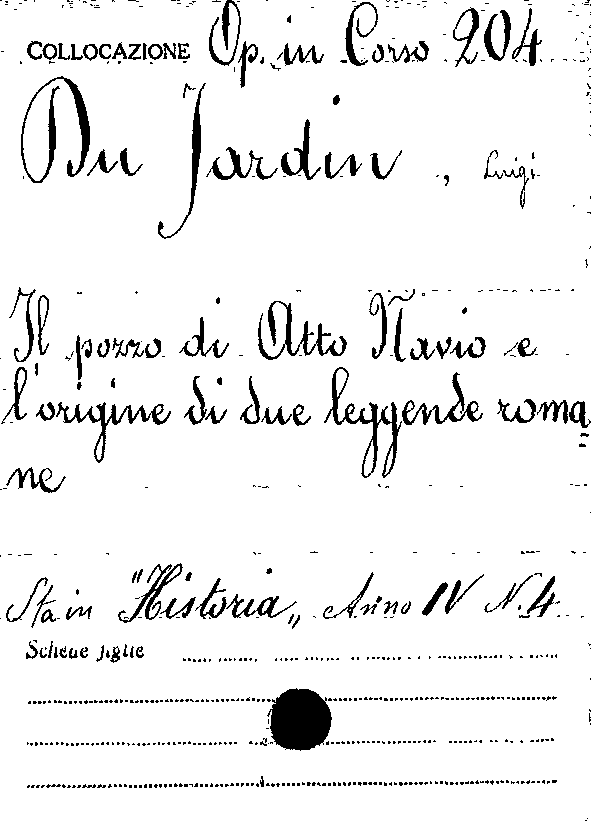 COLLOCAZIONE Op. in Corso 204
Du Jardin, Luigi
Il pozzo di Atto Navio e
l'origine di due leggende roma=
ne
Sta in "Historia„ Anno IV N. 4
Schede figlie